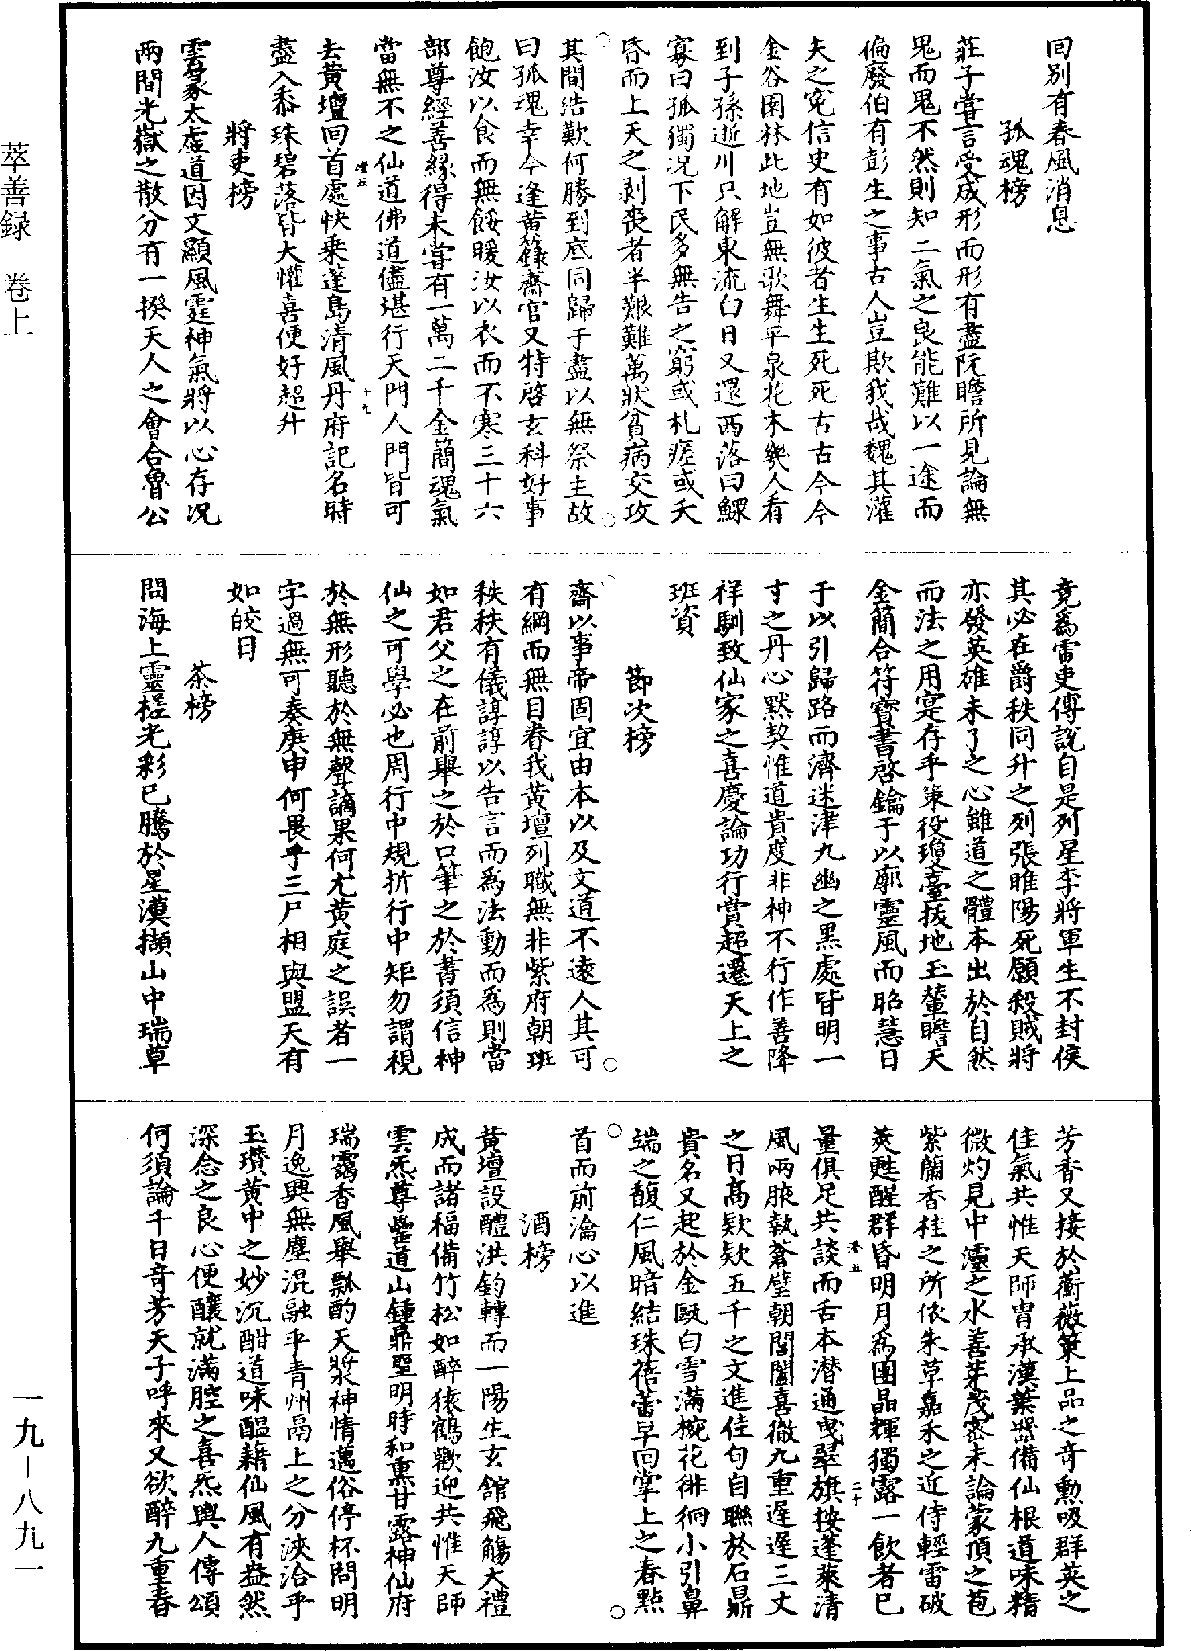 萃善録 卷上
一九－八九一
回別有春風消息
孤魂榜
莊子嘗言受成形而形有盡阮瞻所見論無
鬼而鬼不然則知二氣之良能難以一途而
偏廢伯有彭生之事古人豈欺我哉魏其灌
夫之寃信史有如彼者生生死死古古今今
金谷園林此地豈無歌舞平泉花木幾人看
到子孫逝川只解東流白日又還西落曰鰥
寡曰孤獨况下民多無告之窮或札瘥或夭
昏而上天之剥喪者半艱難萬狀貧病交攻
其間浩歎何勝到底同歸于盡以無祭主故
曰孤魂幸今逢黄籙齋官又特啓玄科好事
飽汝以食而無餒暖汝以衣而不寒三十六
部尊經善緣得未嘗有一萬二千金簡魂氣
當無不之仙道佛道儘堪行天門人門皆可
去黄壇回首處快乘蓬島清風丹府記名時
盡入黍珠碧落皆大懽喜便好超升
將吏榜
雲篆太虚道因文顯風霆神氣將以心存况
兩間光嶽之散分有一揆天人之會合魯公
竟爲雷吏傅説自是列星李將軍生不封侯
其必在爵秩同升之列張睢陽死願殺賊將
亦發英雄未了之心雖道之體本出於自然
而法之用寔存乎策役瓊臺拔地玉輦瞻天
金簡合符寶書啓鑰于以廓靈風而昭慧日
于以引歸路而濟迷津九幽之黑處皆明一
寸之丹心默契惟道貴度非神不行作善降
祥馴致仙家之喜慶論功行賞超遷天上之
班資
節次榜
齋以事帝固宜由本以及文道不遠人其可
有綱而無目眷我黄壇列職無非紫府朝班
秩秩有儀諄諄以告言而爲法動而爲則當
如君父之在前舉之於口筆之於書須信神
仙之可學必也周行中規折行中矩勿謂視
於無形聽於無聲謫果何尤黄庭之誤者一
字過無可奏庚申何畏乎三尸相與盟天有
如皎日
茶榜
問海上靈槎光彩已騰於星漢擷山中瑞草
芳香又接於蘅薇策上品之奇勲吸群英之
佳氣共惟天師胄承漢葉器備仙根道味精
微灼見中𤅊之水善芽茂密未論蒙頂之苞
紫蘭香桂之所依朱草嘉禾之近侍輕雷破
莢甦醒群昏明月爲團晶輝獨露一飲者已
量俱足共談而舌本潜通曳翠旗按蓬萊清
風兩腋執蒼璧朝閶闔喜徹九重遲遲三丈
之日高欵欵五千之文進佳句自聯於石鼎
貴名又起於金甌白雪滿椀花徘徊小引鼻
端之馥仁風暗結珠蓓蕾早回掌上之春點
首而前瀹心以進
酒榜
黄壇設醴洪鈞轉而一陽生玄館飛觴大禮
成而諸福備竹松如醉猿鶴歡迎共惟天師
雲炁尊罍道山鍾鼎聖明時和熏甘露神仙府
瑞靄香風舉瓢酌天漿神情邁俗停杯問明
月逸興無塵混融乎青州鬲上之分浹洽乎
玉瓚黄中之妙沉酣道味醖藉仙風有益然
深念之良心便釀就滿腔之喜炁與人傳頌
何須論千日竒芳天子呼來又欲醉九重春